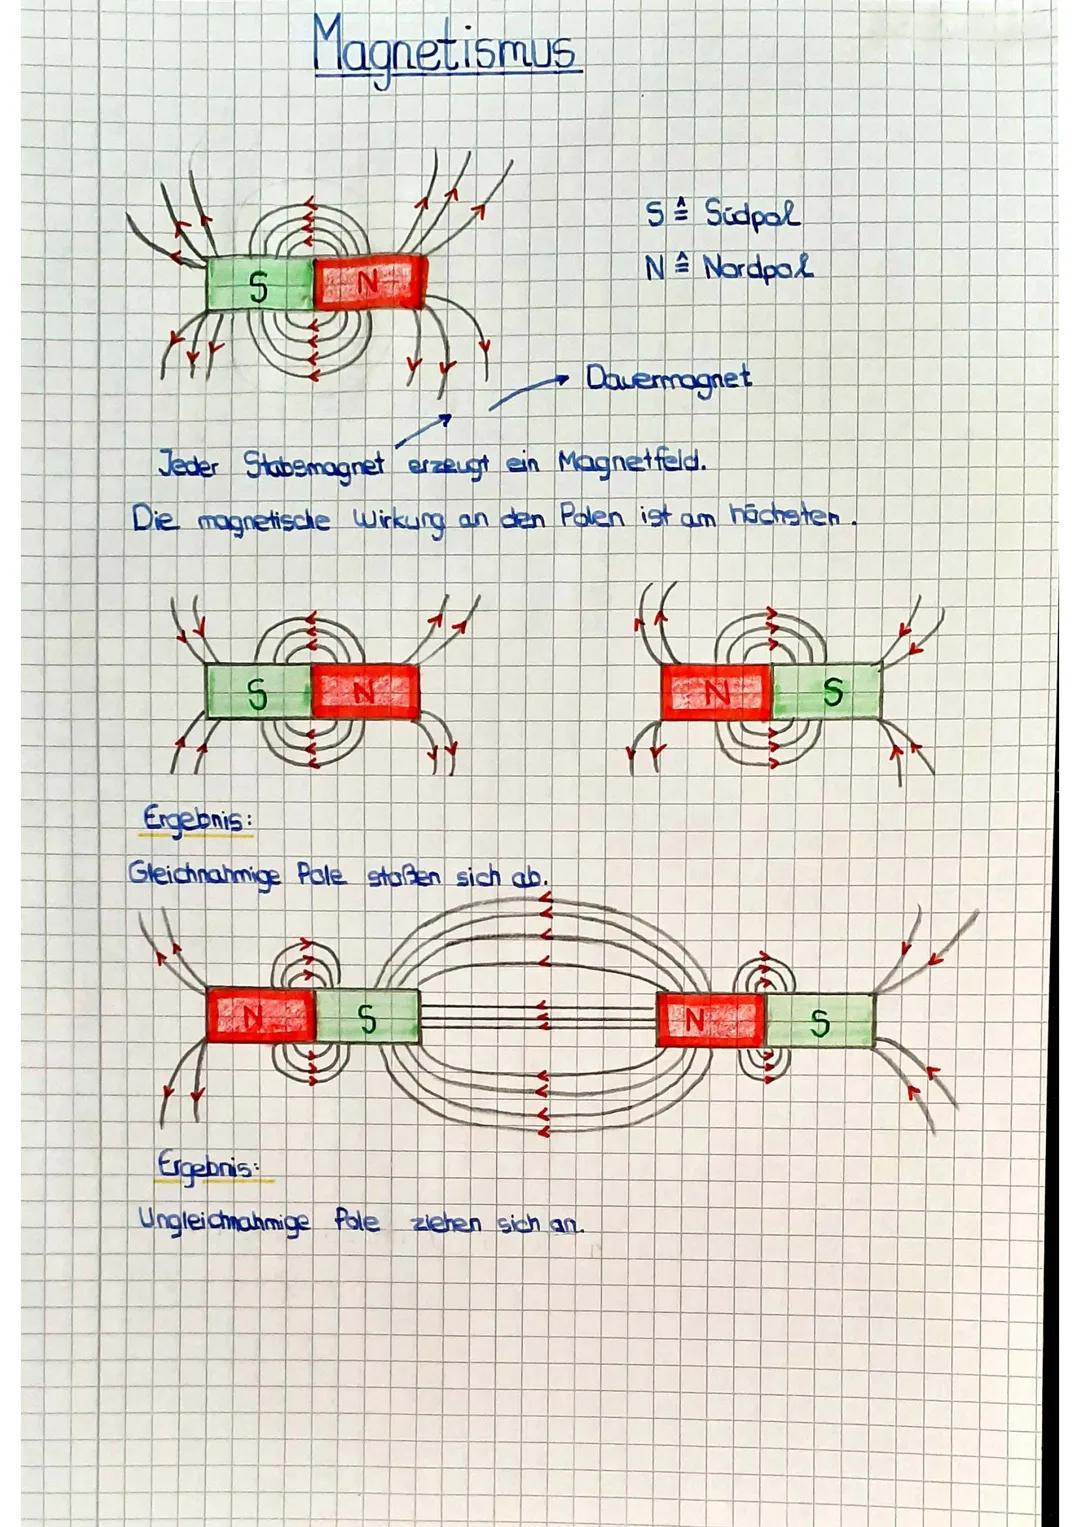 Magnetismus
S ≙ Südpol
N ≙ Nordpol
S N
Dauermagnet
Jeder Stabsmagnet erzeugt ein Magnetfeld.
Die magnetische Wirkung an den Polen ist am höchsten.
S N N S
Ergebnis:
Gleichnahmige Pole stoßen sich ab.
N S N S
Ergebnis:
Ungleichnahmige Pole ziehen sich an.